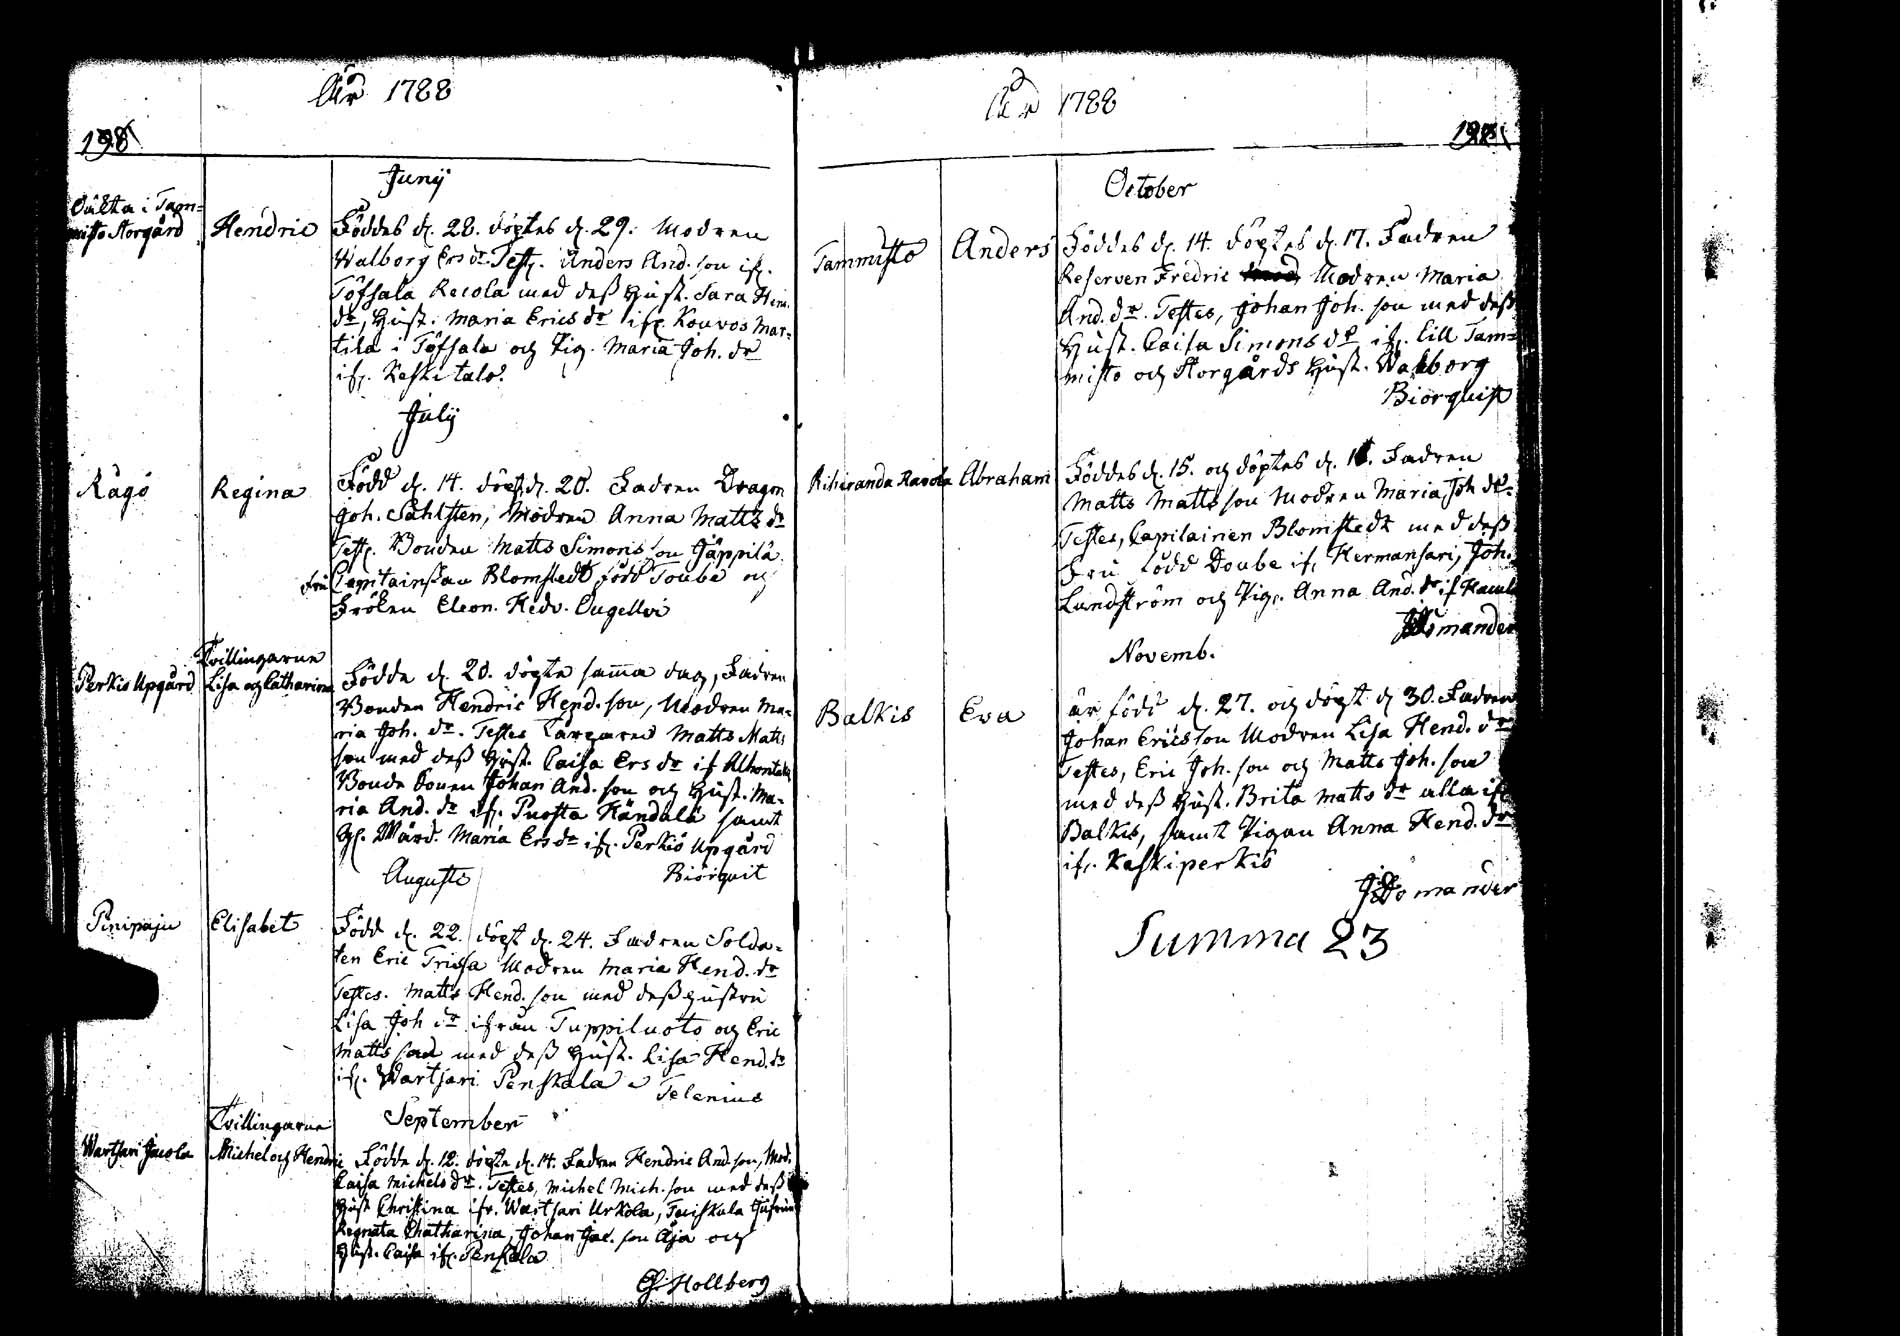 År 1788
198
Junij
Oäkta i Tam=
misto Storgård
Hendric
Föddes d. 28. döptes d. 29. Modren
Walborg Ersdr. Test. Anders And. son ifr.
Töfsala Recola med dess Hust. Sara Hein.
dr, Hust. Maria Ericsdr ifr. Kouvos Mar=
tila i Töfsala och Pig. Maria Joh. dr
ifr. Keskitalo.
Julij
Rågö
Regina
Född d. 14. döpt d. 20. Fadren Dragon
Joh. Sahlsten, Modren Anna Matts dr
Test. Bonden Matts Simons son Jäppilä
Fru Capitainskan Blomstedt född Toube och
Fröken Eleon. Hedv.
Perkio Upgård
Tvillingarne
Lisa och Catharina
Födde d. 20. döpte samma dag, Fadren
Bonden Hendric Hend. son, Modren Ma=
ria Joh. dr. Testes Matts Matts
son med dess Hust. Caisa Ers dr if
Bonde Sonen Johan And. son och Hust. Ma=
ria And. dr ifr. Puosta Händälä samt
Maria Ers dr ifr. Perkiö Upgård
Biörquit
Augusti
Pinipaju
Elisabet
Född d. 22. döpt d. 24. Fadren Solda=
ten Eric Trissa Modren Maria Hend. dr
Testes. Matts Hend. son med dess hustru
Lisa Joh dr ifrån Tuppiluoto och Eric
Matts son med dess Hust. Lisa Hend. dr
ifr. Wartsari Penskala
Telenius
September
Wartsari Jacola
Tvillingarne
Michel och Hendric
Födde d. 12. döpte d. 14. Fadren Hendric And. son, Mod.
Caisa Michels dr. Testes, Michel Mich. son med dess
Hust Christina ifr. Wartsari Urkola,
Regnata Chatharina, Johan Jac. son Äja och
Hust. Caisa ifr. Penskala
Hollberg
År 1788
October
Tammisto
Anders
Föddes d. 14. döptes d. 17. Fadren
Reserven Fredric Modren Maria
And. dr. Testes, Johan Joh. son med dess
Hust. Caisa Simons dr ifr. Lill Tam=
misto och Storgårds Hust. Walborg
Biorquist
Rihiranda Ravola
Abraham
Föddes d. 15. och döptes d. Fadren
Matts Matts son Modren Maria Joh dr.
Testes, Capitainen Blomstedt med dess
Fru född Doube if, Hermansari, Joh.
Lundström och Pig. Anna And. dr if
Novemb.
Balkis
Eva
är född d. 27. och döpt d 30. Fadren
Johan Erics son Modren Lisa Hend. dr
Testes, Eric Joh. son och Matts Joh. son
med dess Hust. Brita Matts dr alla ifr
Balkis, samt Pigan Anna Hend. dr
ifr. Keskiperkiö
Summa 23